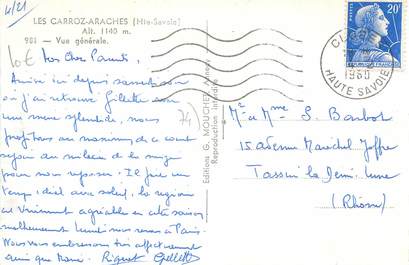 4/21
LES CARROZ-ARACHES (Hte-Savoie)
Alt. 1140 m.
981 — Vue générale.
10€
Mes Chers Parents,
Arrivé ici depuis samedi soir
où j'ai retrouvé Gillette sous
une neige splendide, nous
profitons au maximum de ce court
séjour au milieu de la neige
pour nous reposer. Il fait un
temps idéal avec soleil, la région
est vraiment agréable en cette saison
malheureusement lundi nous serons à Paris.
Nous vous embrassons très affectueusement
ainsi que Mémé. Gillette
Editions G. MOUCHET, Annecy
Reproduction interdite
74)
CLUSES
1960
HAUTE SAVOIE
20F
Mr et Mme S. Barbot
15 avenue Maréchal Joffre
Tassin la Demi-Lune
(Rhône)